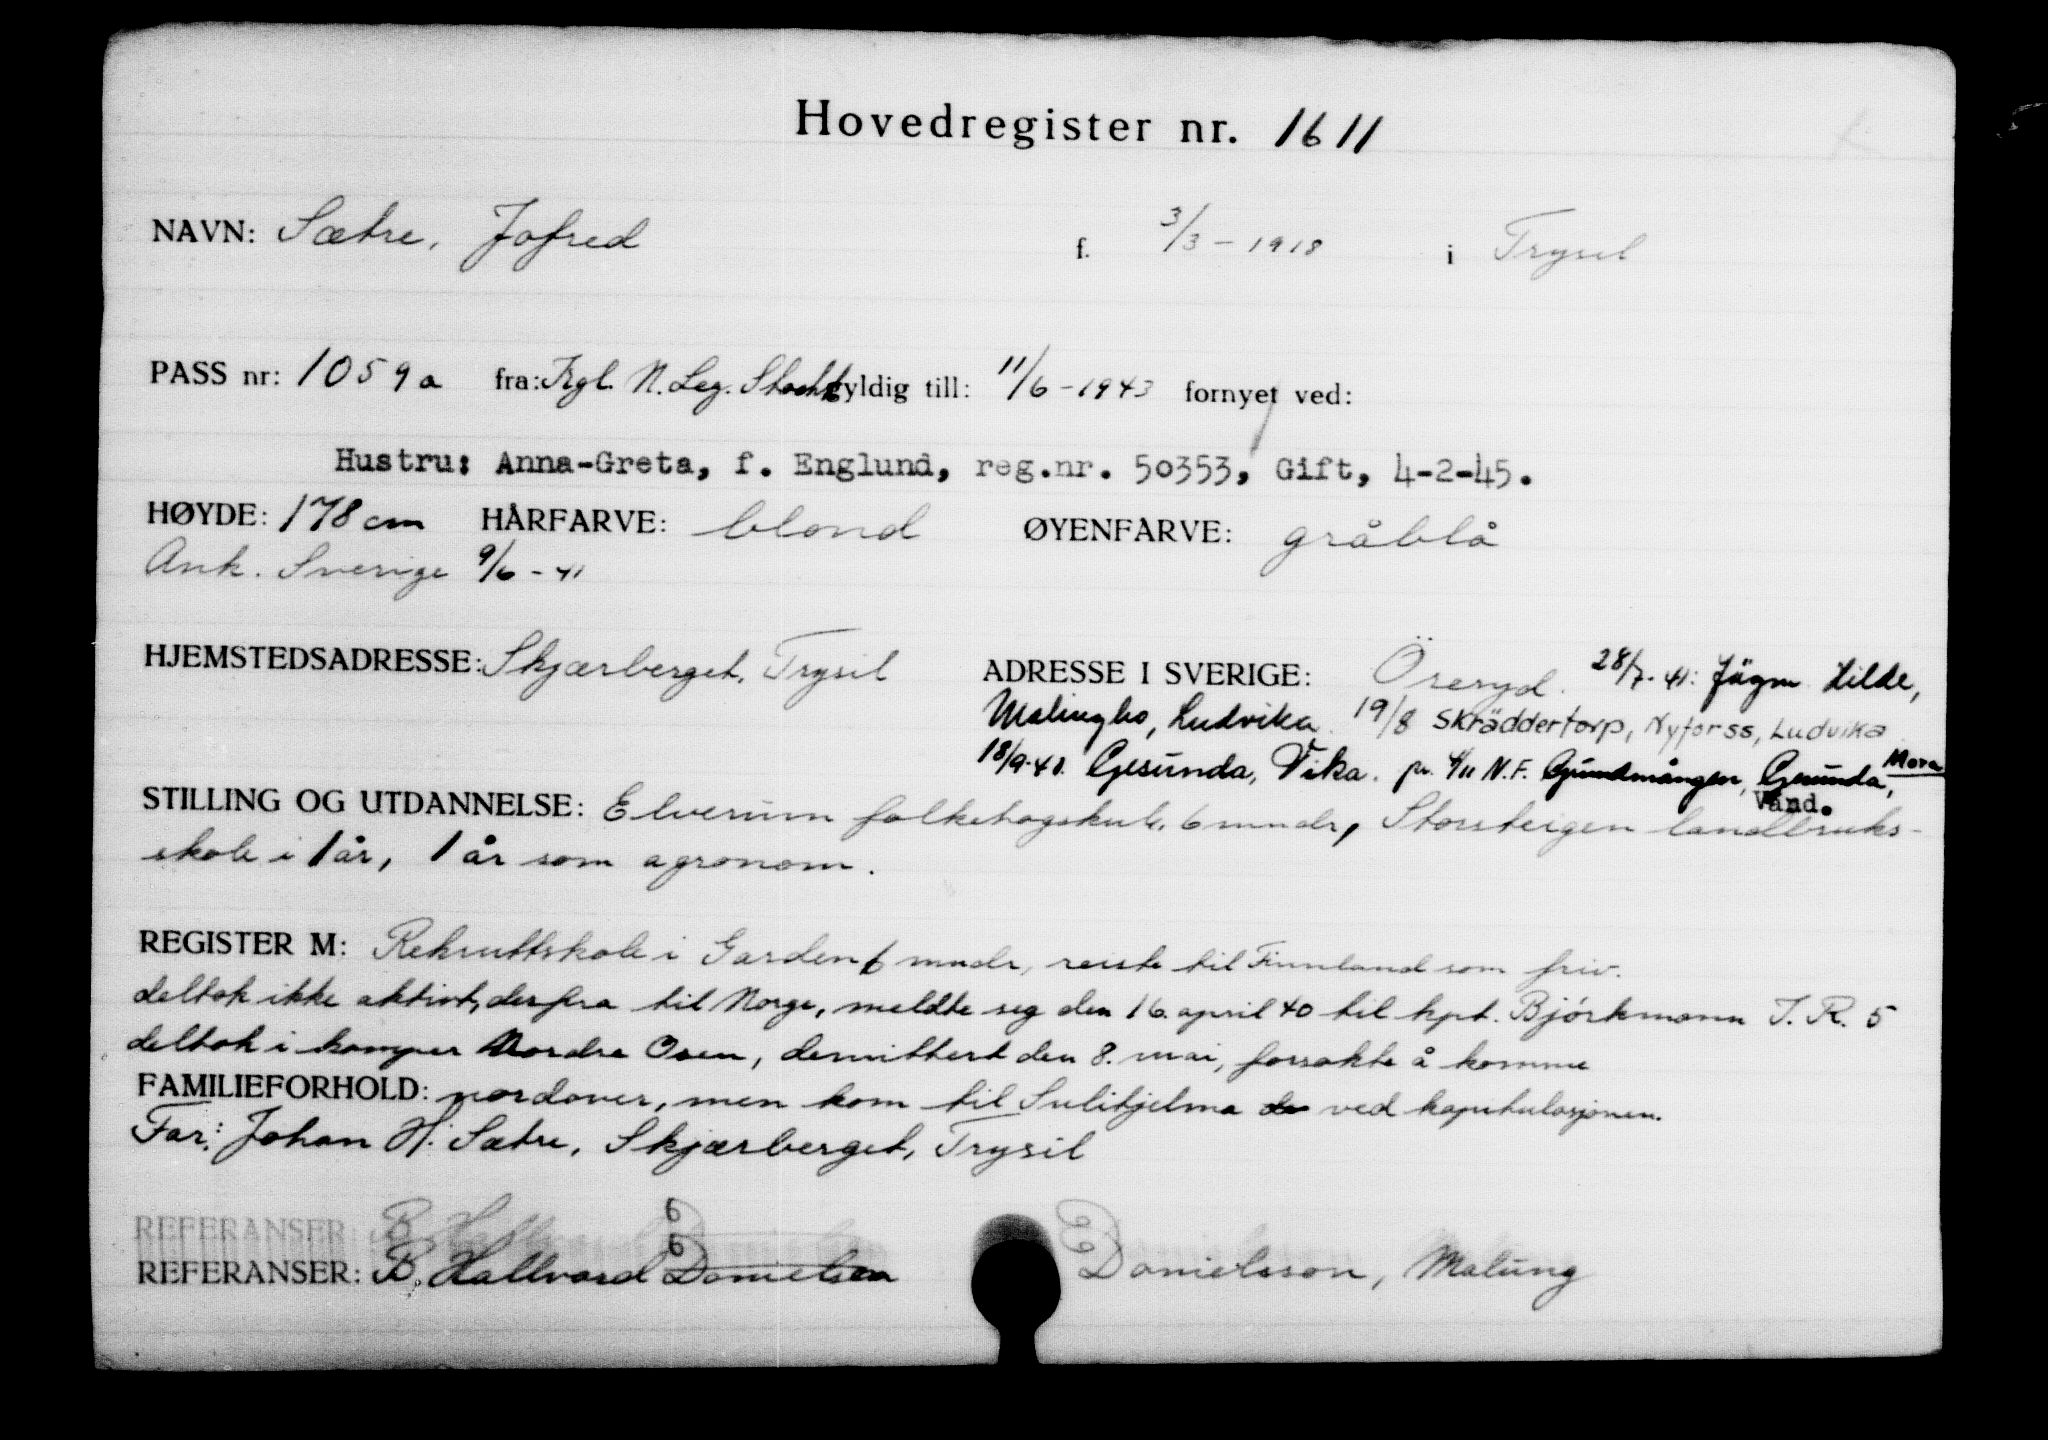 Hovedregister nr. 1611
NAVN: Sætre, Jofred f. 3/3 - 1918 i Trysil
PASS nr: 1059a fra: Kgl. N. Leg. Stockh gyldig till: 11/6 - 1943 fornyet ved:
Hustru: Anna-Greta, f. Englund, reg.nr. 50353, Gift, 4-2-45.
HØYDE: 178 cm HÅRFARVE: blond ØYENFARVE: gråblå
Ank. Sverige 9/6 - 41
HJEMSTEDSADRESSE: Skjærberget, Trysil ADRESSE I SVERIGE: Öreryd. 28/7. 41: Jägm. Lilde,
Malingbo, Ludvika. 19/8 Skräddertorp, Nyforss, Ludvika
18/9-41. Gesunda, Vika. pr. 4/11 N.F. Gesunda, Mora
Vand.
STILLING OG UTDANNELSE: Elverum folkehøgskule, 6 mndr, Storsteigen landbruks-
skole i 1 år, 1 år som agronom.
REGISTER M: Rekruttskole i Garden 6 mndr, reiste til Finnland som friv.
deltok ikke aktivt, derfra til Norge, meldte seg den 16. april 40 til kpt. Bjørkmann I.R. 5
deltok i kamper Nordre Osen, demittert den 8. mai, forsøkte å komme
FAMILIEFORHOLD: nordover, men kom til Sulitjelma da ved kapitulasjonen.
Far: Johan H. Sætre, Skjærberget, Trysil
REFERANSER: B. H 6 D
REFERANSER: B. Hallvard 6 Danielsen Danielsson, Malung